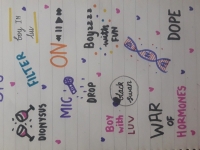 Boy IN
Luv
FILTER
DIONYSUS
ON
MIC
DROP
Boyzzzz
with
FUN
BOY
with
LUV
black
swan
DOPE
WAR
OF
HORMONES